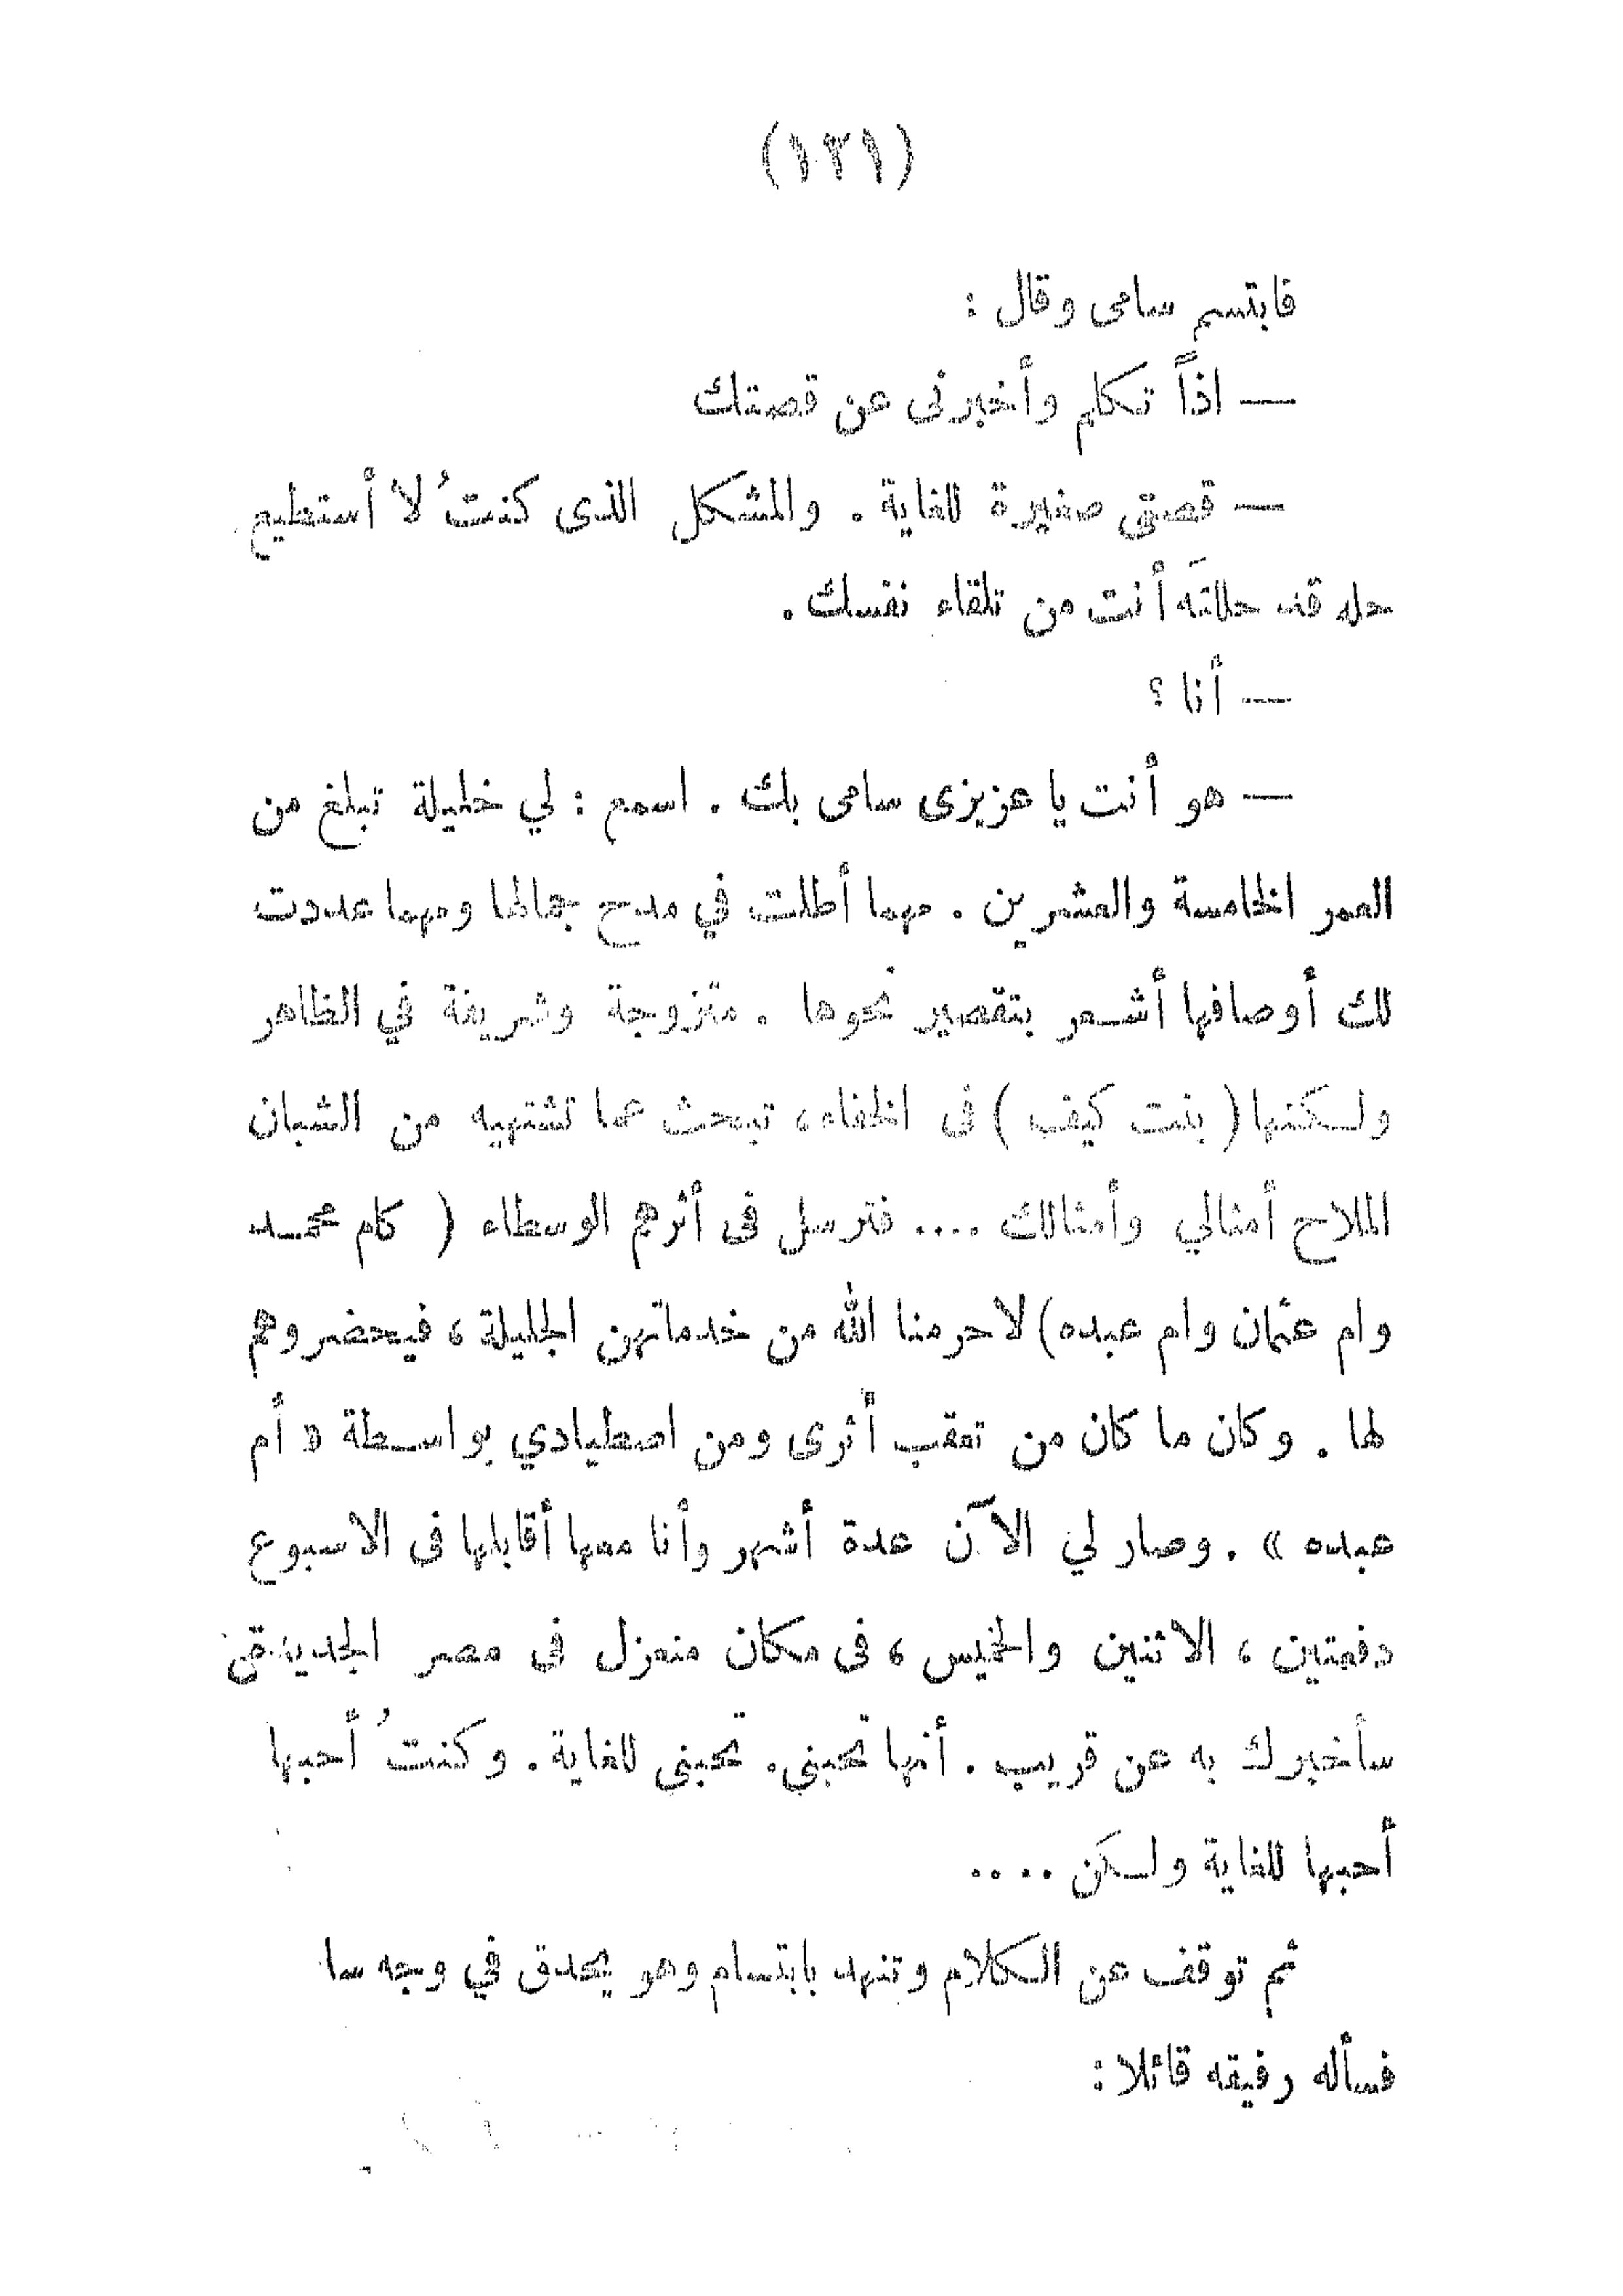 (١٢١)
فابتسم سامى وقال :
— اذاً تكلم وأخبرنى عن قصتك
— قصتى صغيرة للغاية . والمشكل الذى كنتُ لا أستطيع
حله قد حللتَه أنت من تلقاء نفسك .
— أنا ؟
— هو أنت يا عزيزى سامى بك . اسمع : لي خليلة تبلغ من
العمر الخامسة والعشرين . مهما أطلت في مدح جمالها ومهما عددت
لك أوصافها أشعر بتقصير نحوها . متزوجة وشريفة في الظاهر
ولكنها ( بنت كيف ) فى الخفاء ، تبحث عما تشتهيه من الشبان
الملاح أمثالي وأمثالك .... فترسل فى أثرهم الوسطاء ( كام محمد
وام عثمان وام عبده ) لا حرمنا الله من خدماتهن الجليلة ، فيحضروهم
لها . وكان ما كان من تعقب أثرى ومن اصطيادي بواسطة « أم
عبده » . وصار لي الآن عدة أشهر وأنا معها أقابلها فى الاسبوع
دفعتين ، الاثنين والخميس ، فى مكان منعزل فى مصر الجديدة
سأخبرك به عن قريب . أنها تحبنى . تحبنى للغاية . وكنتُ أحبها
أحبها للغاية ولكن ....
ثم توقف عن الكلام وتنهد بابتسام وهو يحدق في وجه
فسأله رفيقه قائلا :